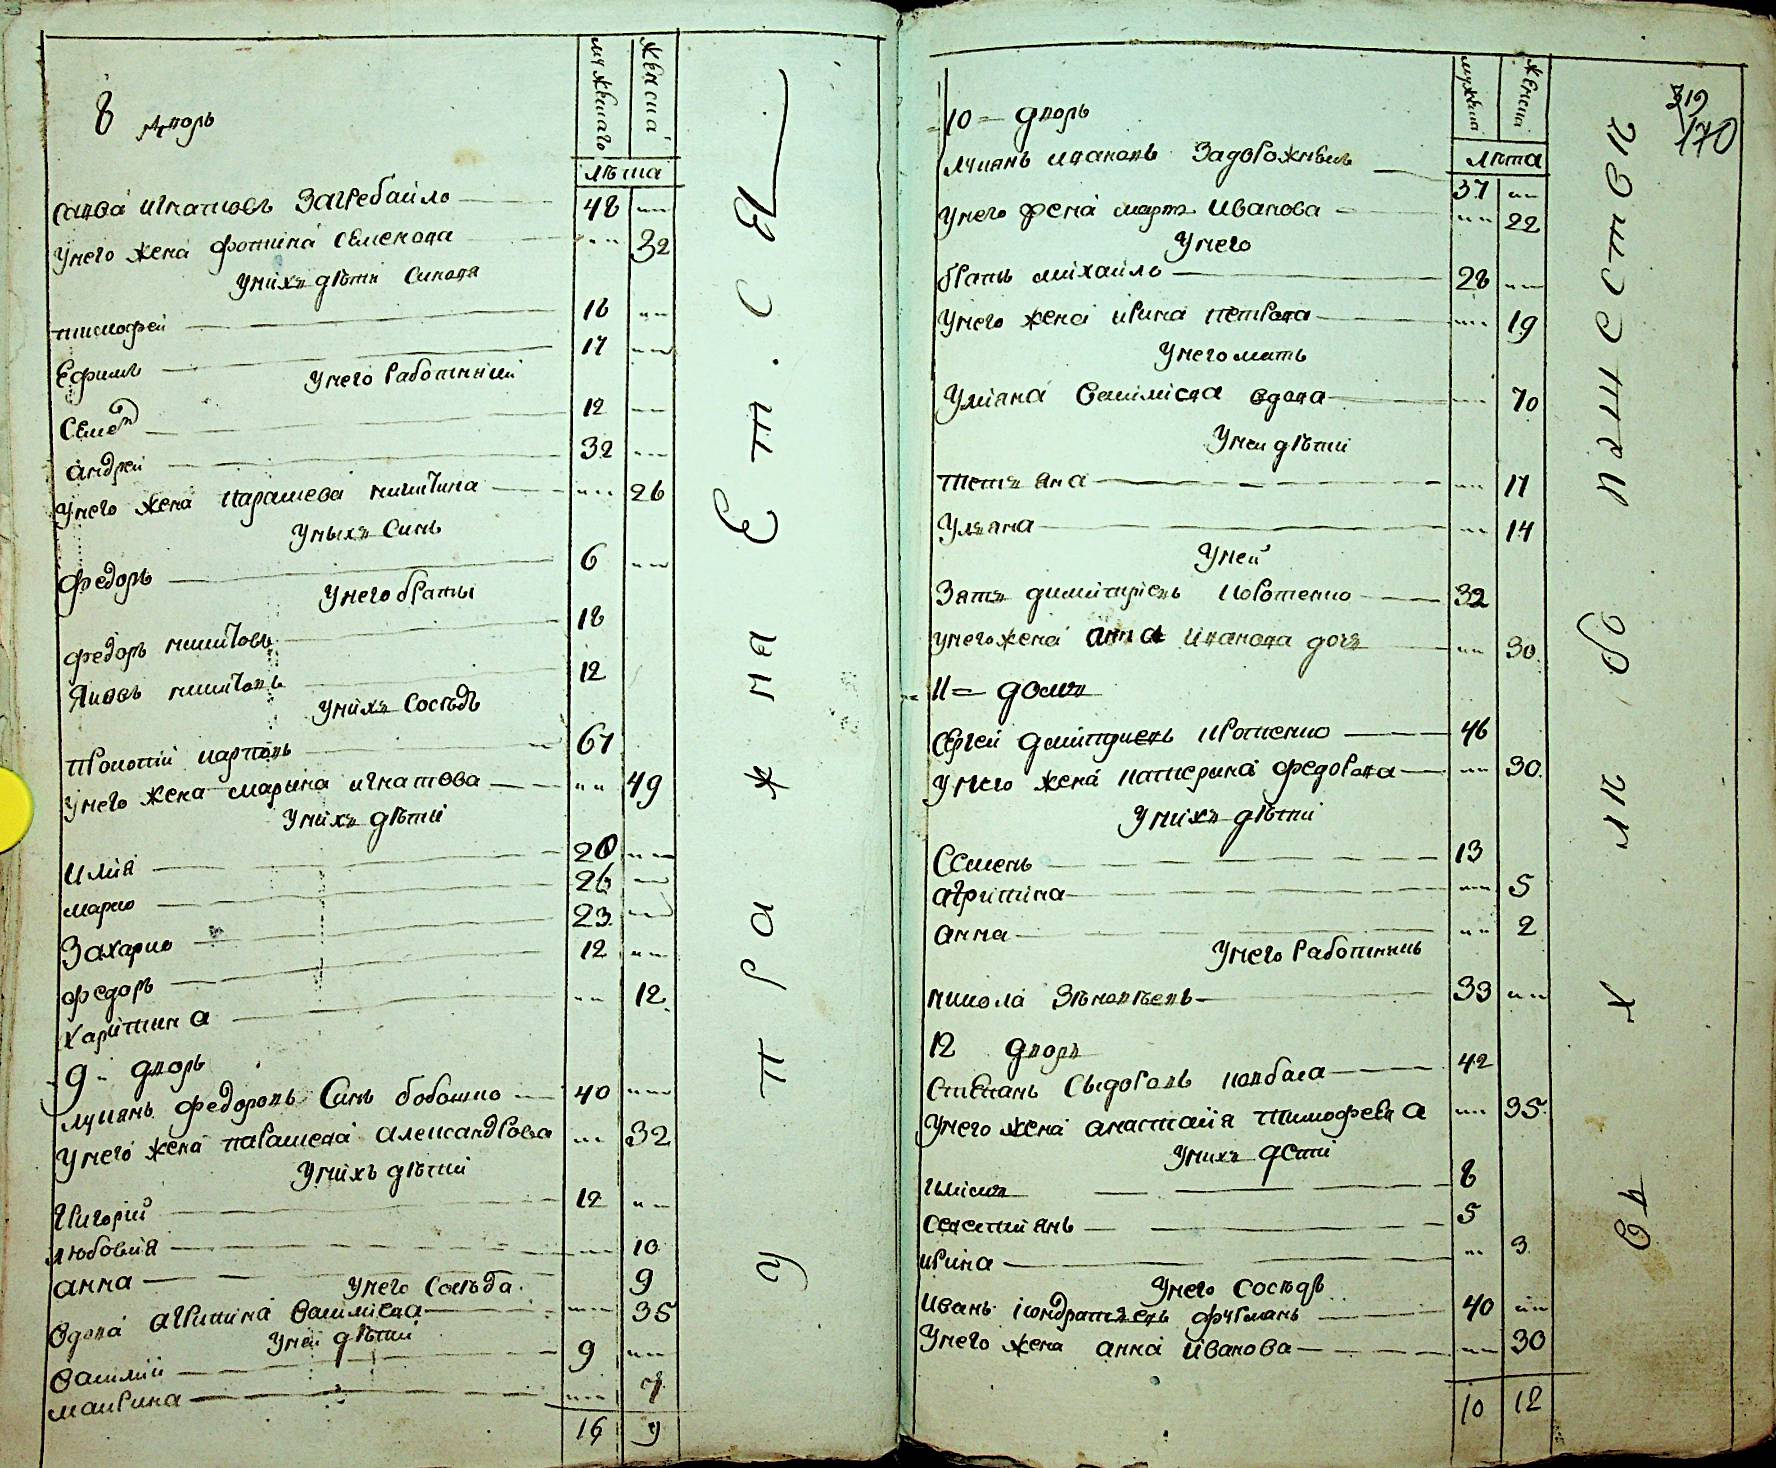 мужескаго женска
лѣта
8 дворъ
савва игнатовъ Загребайло 48
унего жена фотина семенова 32
унихъ дѣти синовя
тимофей 16
Ефимъ 17
унего работники
Семен 12
андрей 32
унего жена парашева никитина 26
уныхъ синъ
федоръ 6
унего браты
федоръ никитовъ 18
Яковъ никитовъ 12
унихъ сосѣдъ
прокопій карповъ 67
унего жена марина игнатова 49
унихъ дѣти
илия 20
марко 26
Захарио 23
федоръ 12
харитина 12
9 дворъ
лукянъ федоровъ Синъ бобошко 40
унего жена парашева александрова 32
унихъ дѣтий
григорий 12
любовия 10
анна 9
унего сосѣда
вдова агрипина василиева 35
уней дѣтий
василий 9
макрина 7
16 9
у п р а ж н а Е т . с Я
319
170
мужеска женска
лѣта
10 дворъ
лукянъ ивановъ Задорожнѣй 37
унего жена марта иванова 22
унего
братъ михайло 28
унего жена ирина петрова 19
унего мать
улияна василиева вдова 70
уней дѣтий
тетяна 17
уляна 14
уней
Зать димитриевъ коротенко 32
унего жена анна иванова дочь 30
11 домъ
сергей димитриевъ коротенко 46
унего жена катерина федорова 30
унихъ дѣтий
Семенъ 13
агрипина 5
анна 2
унего работникъ
никола Зѣновѣевъ 33
12 дворъ
стыпанъ сыдоровъ колбаса 42
унего жена анастасия тимофева 35
унихъ дети
8
севастиянъ 5
ирина 3
унего сосѣдъ
иванъ кондратьевъ фурманъ 40
унего жена анна иванова 30
10 12